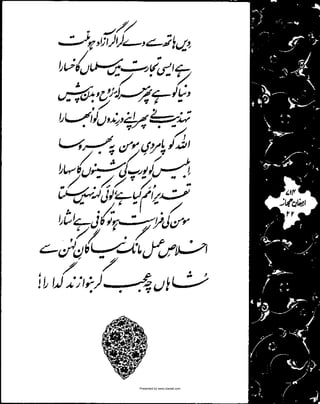 دیں ہاتھ سے دے کر اگر آزاد ہو ملت
ہے ایسی تجارت میں مسلماں کا خسارا
دنیا کو ہے پھر معرکۂ روح و بدن پیش
تہذیب نے پھر اپنے درندوں کو ابھارا
اللہ کو پامردی مومن پہ بھروسا
ابلیس کو یورپ کی مشینوں کا سہارا
تقدیر امم کیا ہے کوئی کہہ نہیں سکتا
مومن کی فراست ہو تو کافی ہے اشارا
اخلاص عمل مانگ نیاگان کہن سے
شاہاں چہ عجب گر بنوازند گدا را!
ارمغان حجاز
۲۲